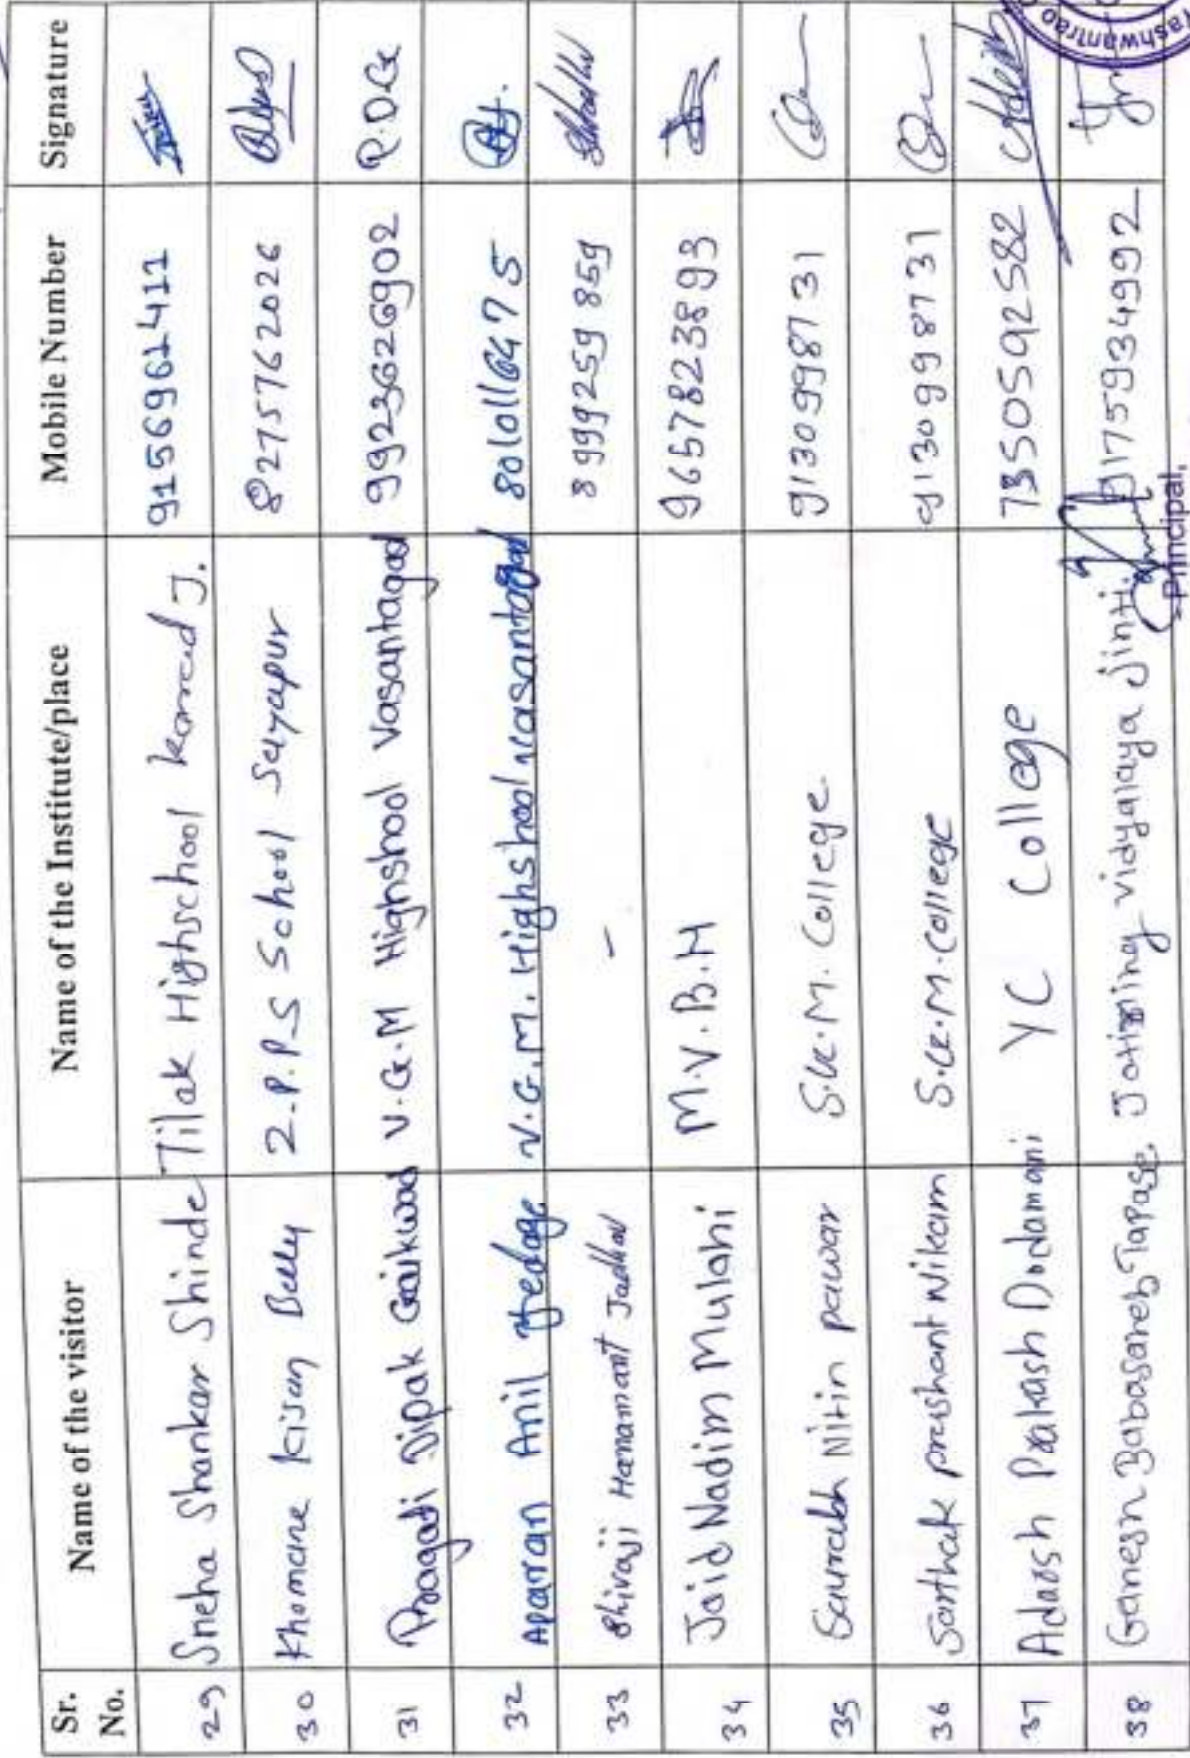 Sr. No. Name of the visitor Name of the Institute/place Mobile Number Signature
29 Sneha Shankar Shinde Tilak Highschool karad J. 9156961411
30 Khomane kisan Belly Z.P.P.S School Sayapur 8275762026
31 Pragati Dipak Gaikwad V.G.M Highshool Vasantagad 9923626902 P.D.G
32 Anil V.G.M. Highshool vasantagad 8010116475
33 Shivaji Hanamant Jadhav - 8999259859
34 Jaid Nadim Mulani M.V.B.H 9657823893
35 Saurabh Nitin pawar S.K.M. College. 9130998731
36 Sarthak prashant Nikam S.K.M. College 9130998731
37 Adarsh Prakash Dodamani YC College 7350592582
38 Ganesh Babasaheb Tapase. Jotirling vidyalaya Jinti. 9175934992
Principal,
Yashwantrao